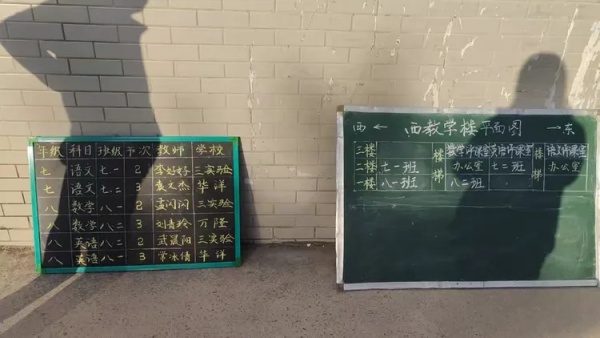 年级 科目 班级 节次 教师 学校
七 语文 七一 2 李好好 三实验
七 语文 七二 3 袁文杰 华洋
八 数学 八一 2 黄闪闪 三实验
八 数学 八二 3 刘青玲 万隆
八 英语 八二 2 武晨阳 三实验
八 英语 八一 3 常冰倩 华洋
西 ← 西教学楼平面图 → 东
三楼 楼梯 数学评课室 英语评课室 楼梯 语文评课室
二楼 七一班 办公室 七二班 办公室
一楼 八一班 八二班